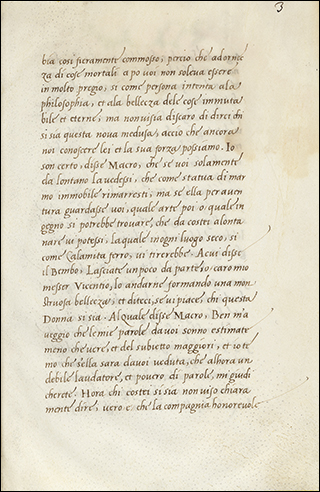 3
bia cosi fieramente commosso, percio che adornez
za di cose mortali a po voi non soleva essere
in molto pregio, si come persona intenta ala
philosophia, et ala bellezza dele cose immuta
bile et eterne, ma non vi sia discaro di direci chi
si sia questa nova medusa, accio che ancora
noi conoscere lei et la sua forza possiamo. Io
son certo, disse Macro, che se voi solamente
da lontano la vedessi, che come statua di mar
mo immobile rimarresti, ma se ella per aven
tura guardasse voi, quale arte poi o quale in
gegno si potrebbe trovare, che da costei alonta
nare vi potessi, la quale in ogni luogo seco, si
come calamita ferro, vi tirerebbe. A cui disse
il Bembo, Lasciate un poco da parte, o caro mio
messer Vicentio, lo andarne formando una mon
struosa bellezza, et diteci, se vi piace, chi questa
Donna si sia. Al quale disse Macro, Ben m'a
veggio che le mie parole da voi sonno estimate
meno che vere, et del subietto maggiori, et io te
mo che s'ella sara da voi veduta, che alhora un
debile laudatore, et povero di parole, mi giudi
cherete. Hora chi costei si sia non vi so chiara
mente dire, vero e che la compagnia honorevole